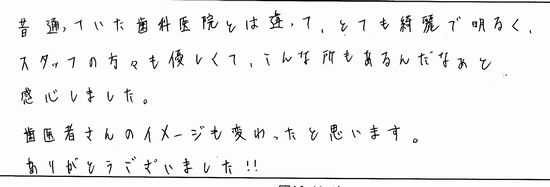 昔通っていた歯科医院とは違って、とても綺麗で明るく、
スタッフの方々も優しくて、こんな所もあるんだなぁと
感心しました。
歯医者さんのイメージも変わったと思います。
ありがとうございました!!